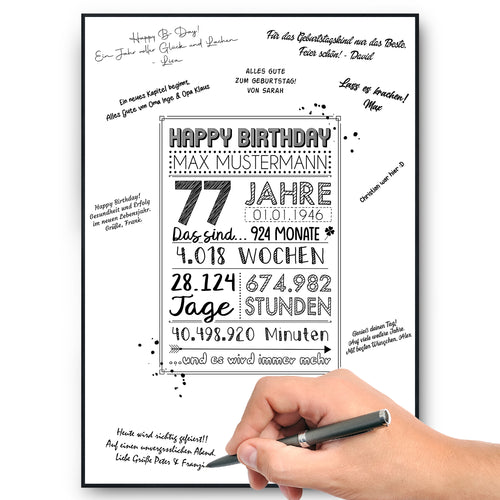 Happy B-Day!
Ein Jahr voller Glück und Lachen
- Lisa
Für das Geburtstagskind nur das Beste.
Feier schön! - David
ALLES GUTE
ZUM GEBURTSTAG!
VON SARAH
Lass es krachen!
Max
Ein neues Kapitel beginnt,
Alles Gute von Oma Inge & Opa Klaus
Christian war hier :D
Happy Birthday!
Gesundheit und Erfolg
im neuen Lebensjahr.
Grüße, Frank.
HAPPY BIRTHDAY
MAX MUSTERMANN
77 JAHRE
01.01.1946
Das sind... 924 MONATE
4.018 WOCHEN
28.124 Tage
674.982 STUNDEN
40.498.920 Minuten
...und es wird immer mehr
Genieß deinen Tag!
Auf viele weitere Jahre.
Mit besten Wünschen, Alex
Heute wird richtig gefeiert!!
Auf einen unvergesslichen Abend.
Liebe Grüße Peter & Franzi